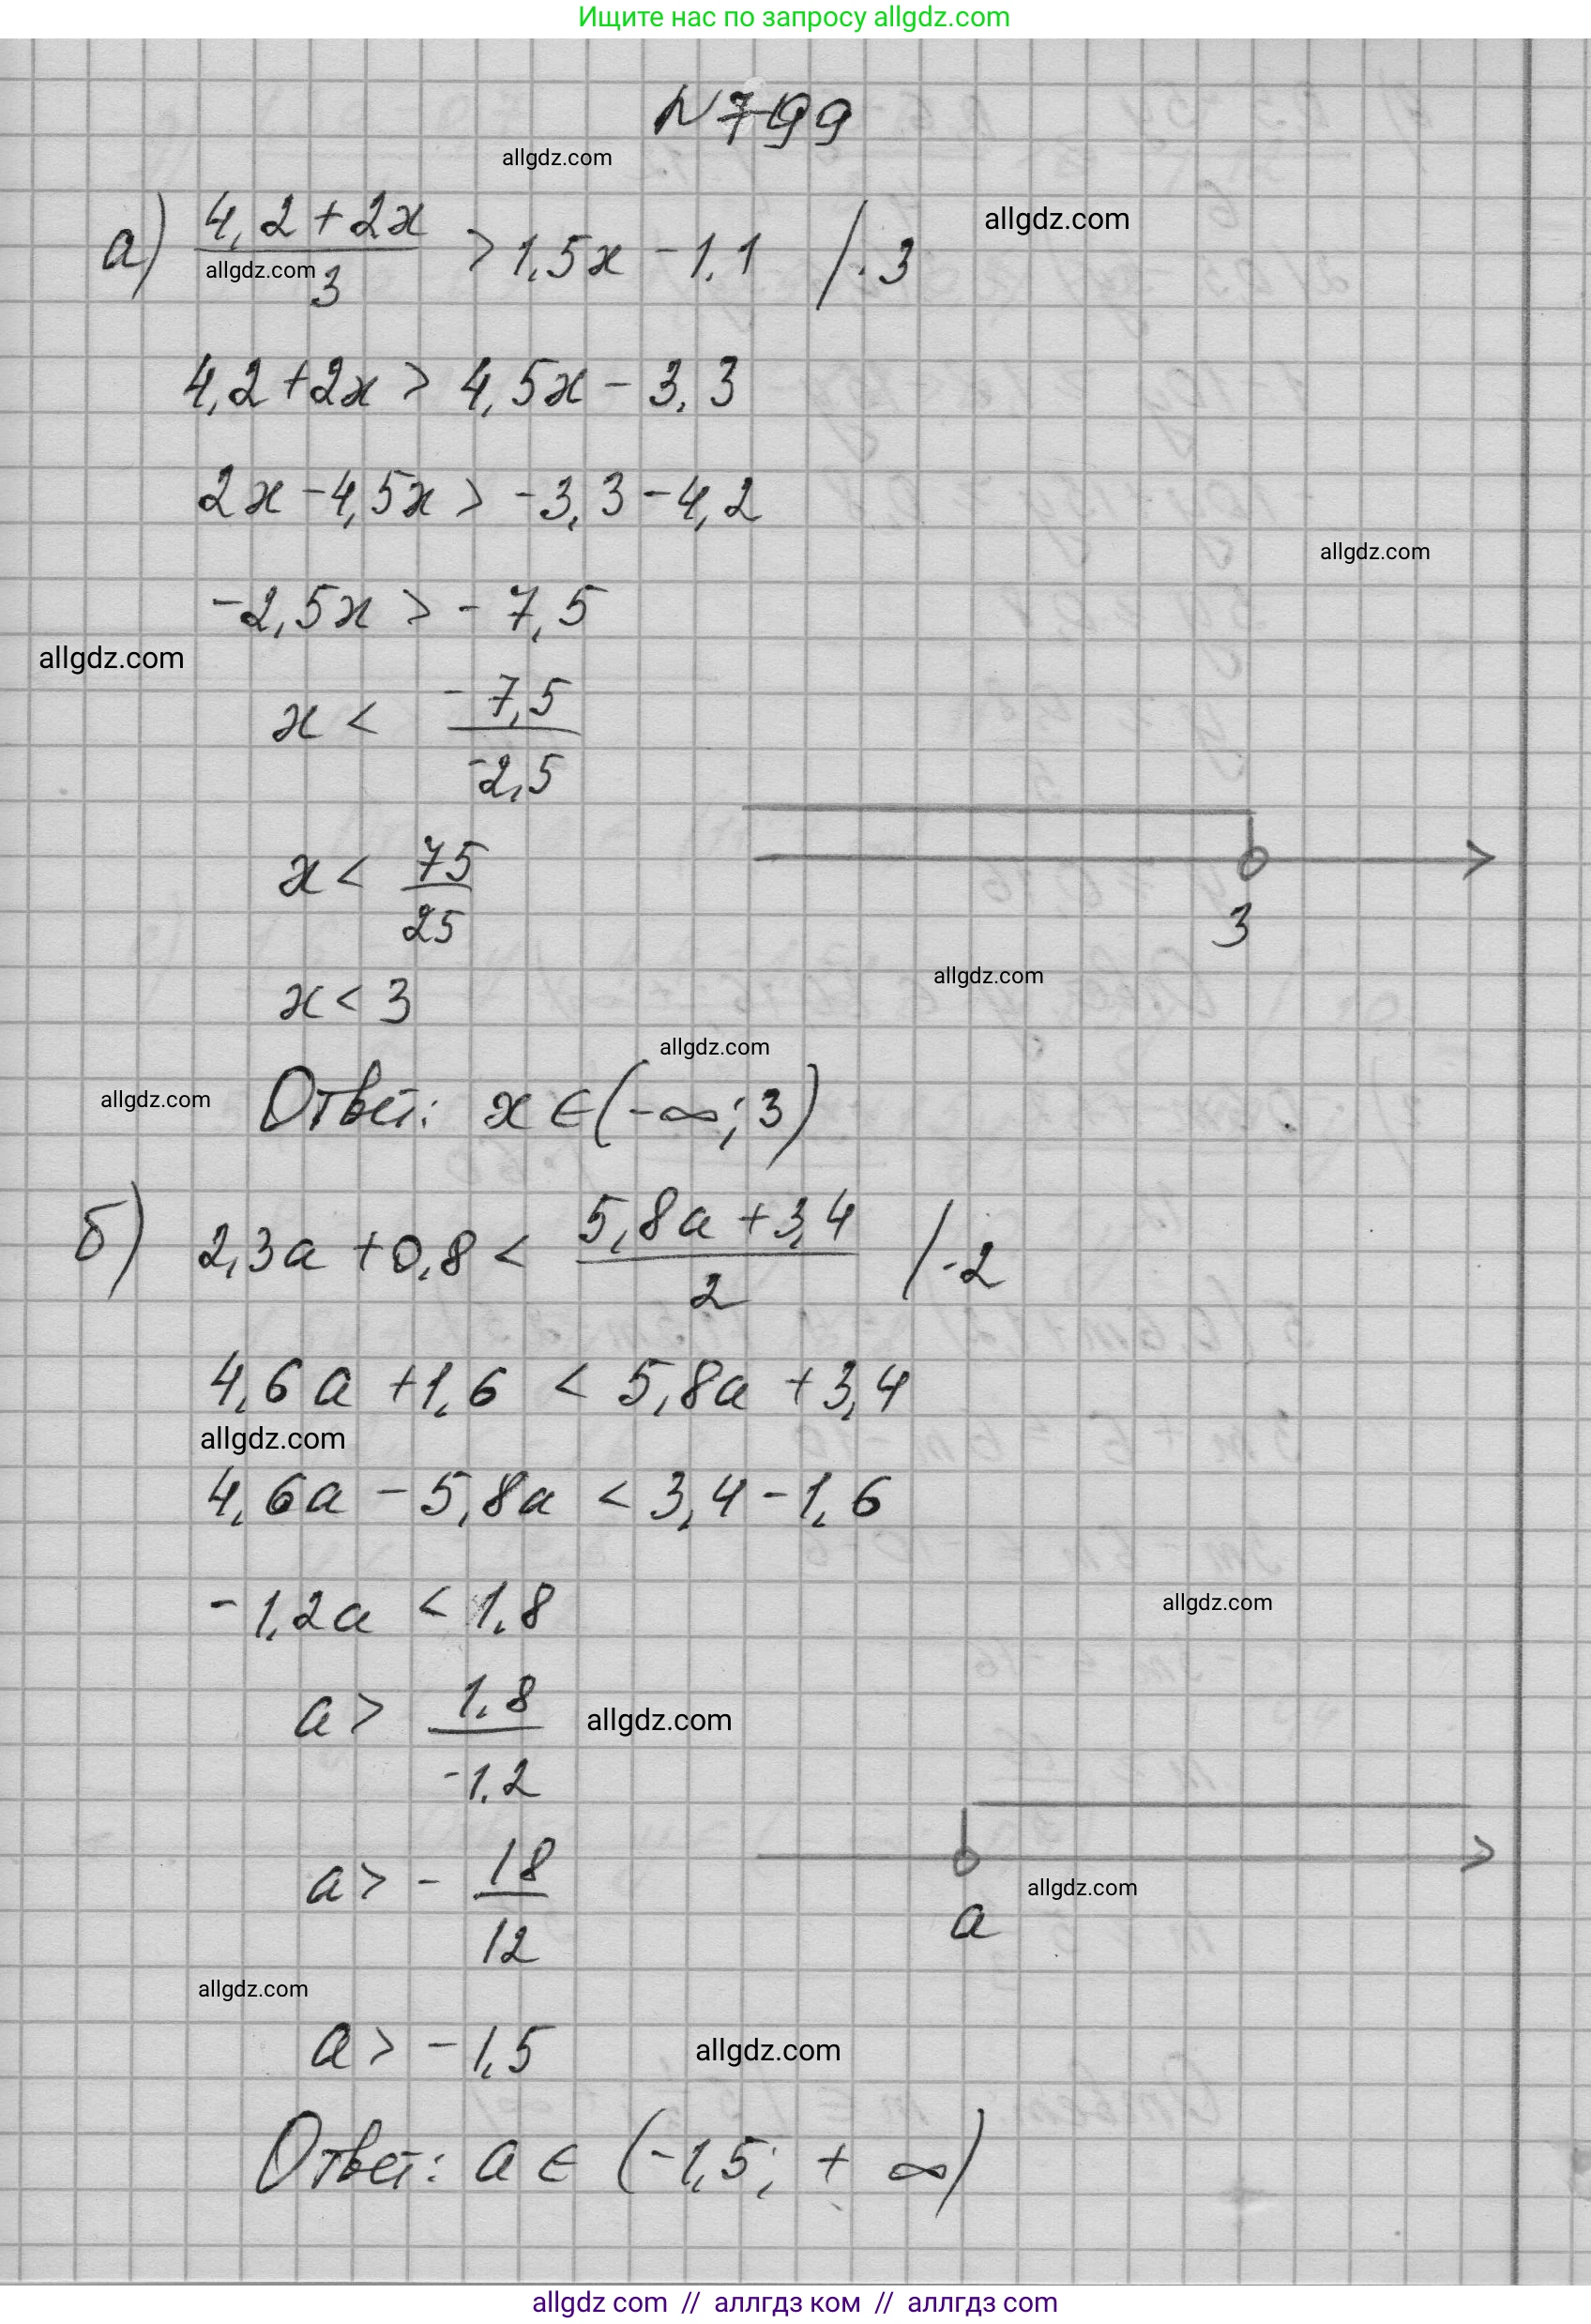 Ищите нас по запросу allgdz.com
N799
allgdz.com
а) (4,2+2x)/3 > 1,5x - 1,1 /·3
allgdz.com
allgdz.com
4,2+2x > 4,5x - 3,3
2x - 4,5x > -3,3 - 4,2
allgdz.com
-2,5x > -7,5
allgdz.com
x < -7,5/-2,5
x < 75/25
3
allgdz.com
x < 3
allgdz.com
allgdz.com
Ответ: x ∈ (-∞; 3)
б) 2,3a + 0,8 < (5,8a + 3,4)/2 /·2
4,6a + 1,6 < 5,8a + 3,4
allgdz.com
4,6a - 5,8a < 3,4 - 1,6
-1,2a < 1,8
allgdz.com
a > 1,8/-1,2
allgdz.com
a > - 18/12
allgdz.com
a
allgdz.com
a > -1,5
allgdz.com
Ответ: a ∈ (-1,5; + ∞)
allgdz com // аллгдз ком // аллгдз com